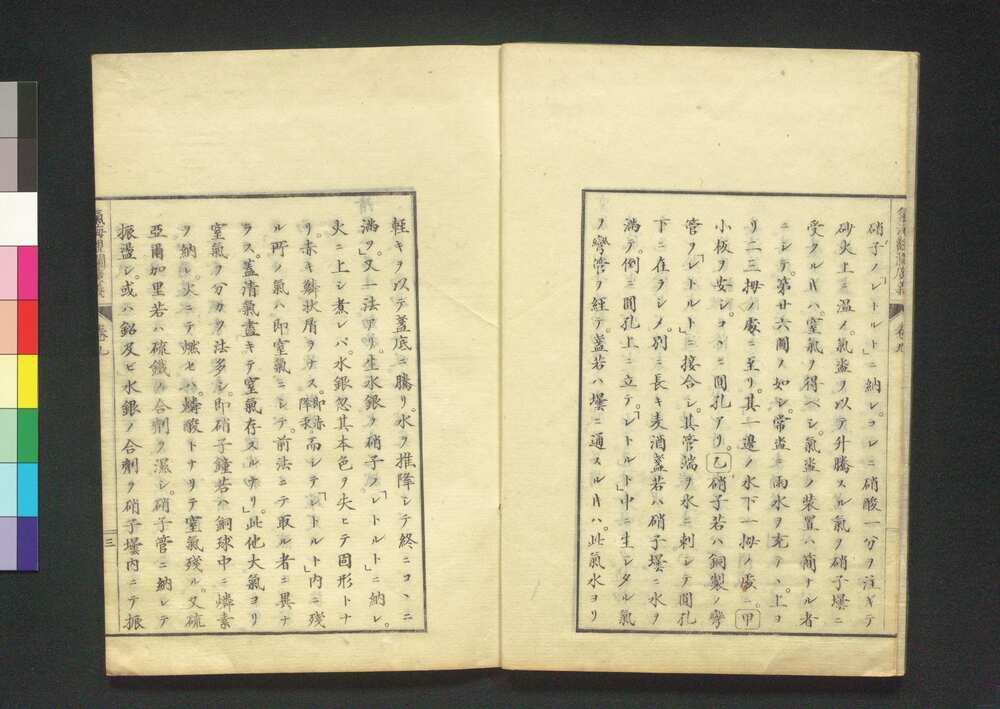 硝子ノ「レトルト」ニ納レ。コレニ硝酸一分ヲ注ギテ
砂火上ニ温メ。氣盎ヲ以テ升騰スル氣ヲ硝子壜ニ
受クルヰハ。窒氣ヲ得ベシ。氣盎ノ裝置ハ簡ナル者
ニシテ。第廿六圖ノ如シ。常盎ニ雨水ヲ充テヽ。上ヨ
リ二三拇ノ處ニ至リ。其一邊ノ水下一拇ノ處ニ。甲
小板ヲ安シ。コヽニ間孔アリ。乙硝子若ハ銅製ノ彎
管ヲ「レトルト」ニ接合シ。其管端ヲ水ニ刺シテ間孔
下ニ在ラシメ。別ニ長キ麦酒盞若ハ硝子壜ニ水ヲ
満テ。倒ニ間孔上ニ立テ。「レトルト」中ニ生シタル氣
ノ彎管ヲ経テ。盞若ハ壜ニ通スルヰハ。此氣水ヨリ
軽キヲ以テ盞底ニ騰リ。水ヲ推降シテ終ニコヽニ
満ツ。又一法アリ。生水銀ヲ硝子ノ「レトルト」ニ納レ。
火ニ上シ煮レバ。水銀忽其本色ヲ失ヒテ固形トナ
リ。赤キ鱗状屑ヲナス 而シテ「レトルト」内ニ残
ル所ノ氣ハ即窒氣ニシテ。前法ニテ取ル者ニ異ナ
ラス。蓋清氣盡キテ窒氣存スルナリ。此他大氣ヨリ
窒氣ヲ分カツ法多シ。即硝子鐘若ハ銅球中ニ燐素
ヲ納レ。火ニテ燃セハ。燐酸トナリテ窒氣殘ル。又硫
亞爾加里若ハ硫鐵ノ合劑ヲ濕シ。硝子管ニ納レテ
振盪シ。或ハ鉛及ヒ水銀ノ合劑ヲ硝子壜内ニテ振
氣海觀瀾廣義
卷九
三